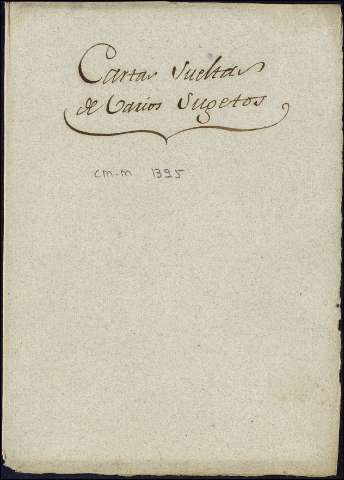 Cartas Sueltas
de Varios Sugetos
cm-m 1395